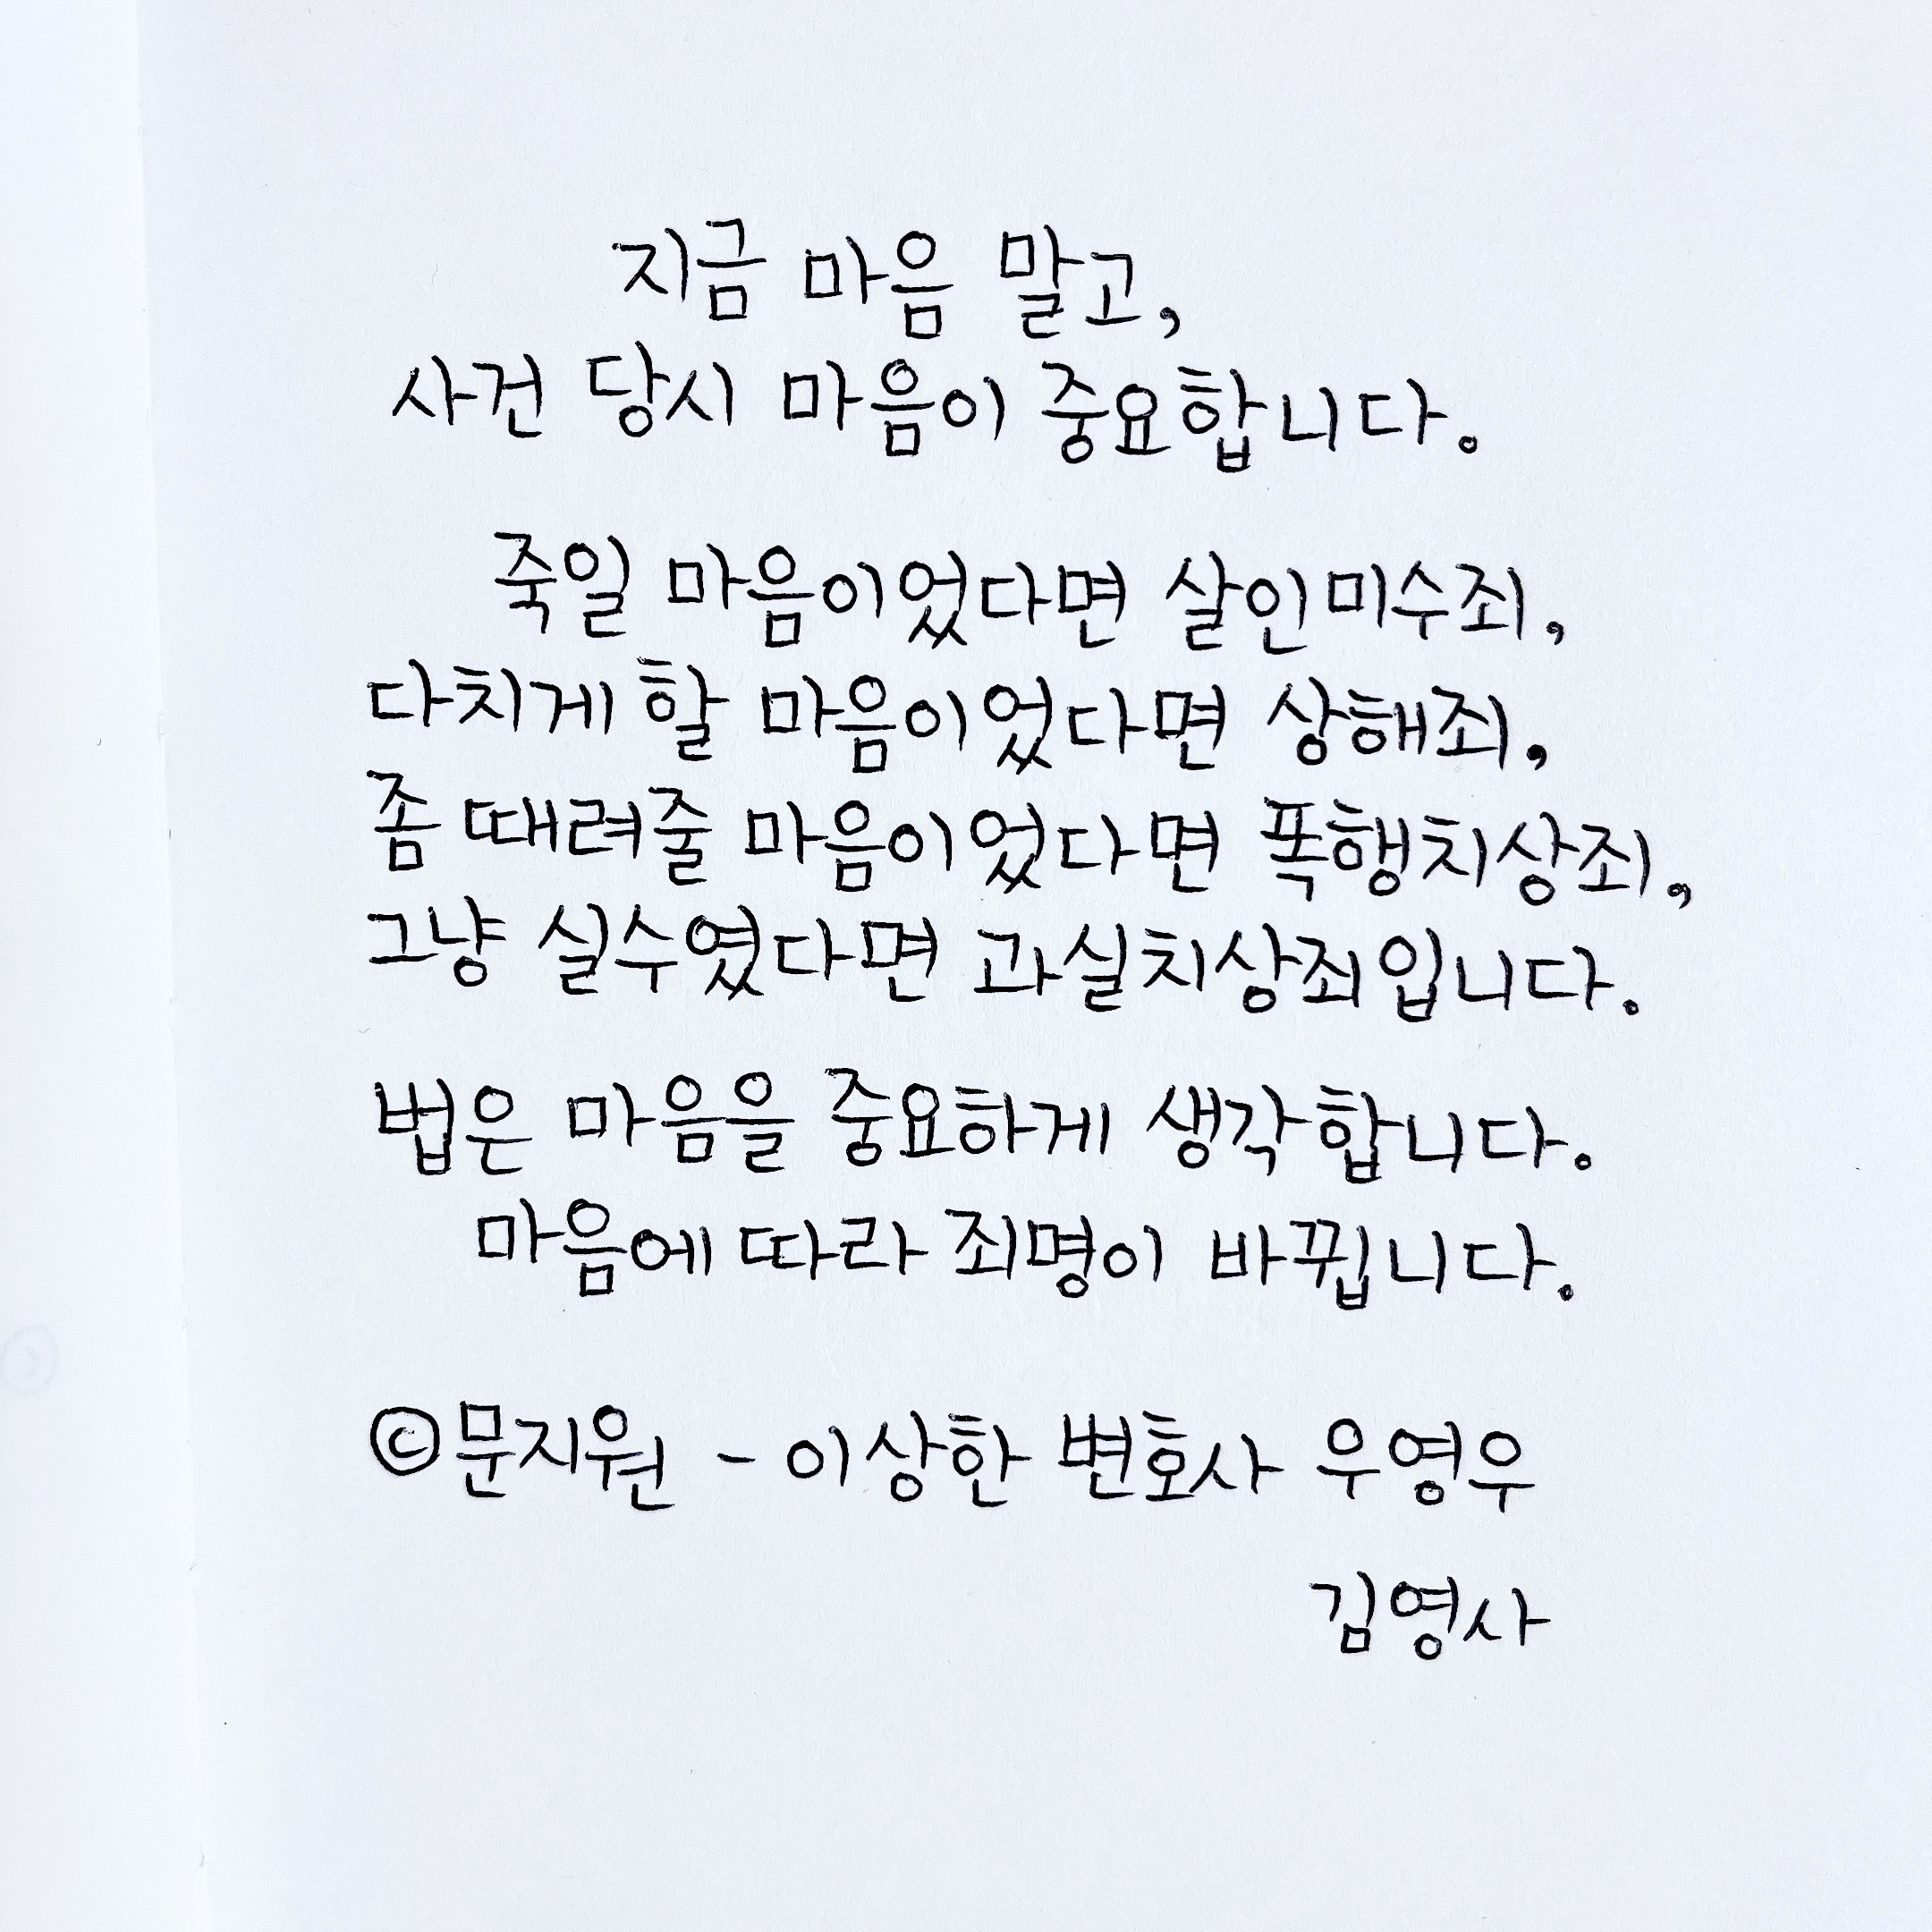 지금 마음 말고,
사건 당시 마음이 중요합니다.
죽일 마음이었다면 살인미수죄,
다치게 할 마음이었다면 상해죄,
좀 때려줄 마음이었다면 폭행치상죄,
그냥 실수였다면 과실치상죄입니다.
법은 마음을 중요하게 생각합니다.
마음에 따라 죄명이 바뀝니다.
©문지원 - 이상한 변호사 우영우
김영사